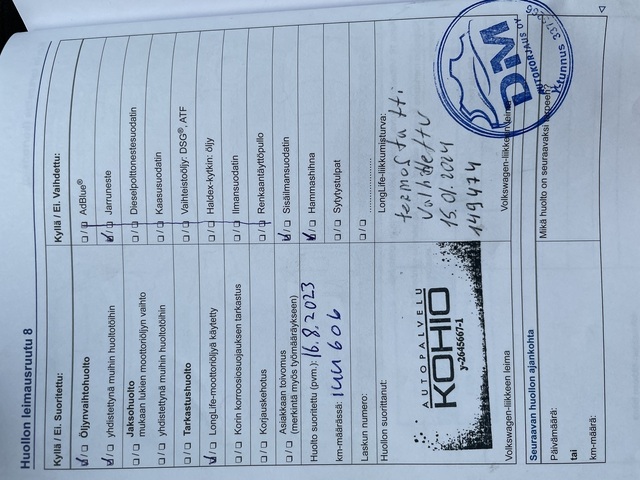 Huollon leimausruutu 8
Kyllä / Ei. Suoritettu:
☑/☐ Öljynvaihtohuolto
☑/☐ yhdistettynä muihin huoltotöihin
☐/☐ Jaksohuolto
mukaan lukien moottoriöljyn vaihto
☐/☐ yhdistettynä muihin huoltotöihin
☐/☐ Tarkastushuolto
☑/☐ LongLife-moottoriöljyä käytetty
☐/☐ Korin korroosiosuojauksen tarkastus
☐/☐ Korjauskehotus
☐/☐ Asiakkaan toivomus
(merkintä myös työmääräykseen)
Huolto suoritettu (pvm.): 16.8.2023
km-määrässä: 144606
Laskun numero:
Huollon suorittanut:
AUTOPALVELU
KOHIO
y-2645667-1
Volkswagen-liikkeen leima
Kyllä / Ei. Vaihdettu:
☐/☐ AdBlue®
☑/☐ Jarruneste
☐/☐ Dieselpolttonestesuodatin
☐/☐ Kaasusuodatin
☐/☐ Vaihteistoöljy: DSG®, ATF
☐/☐ Haldex-kytkin: öljy
☐/☐ Ilmansuodatin
☐/☐ Renkaantäyttöpullo
☑/☐ Sisäilmansuodatin
☑/☐ Hammashihna
☐/☐ Sytytystulpat
☐/☐ ....................
LongLife-liikkumisturva:
termostatti
vaihdettu
15.01.2024
149474
Volkswagen-liikkeen leima
DM
AUTOKORJAUS OY
Y-tunnus
Seuraavan huollon ajankohta
Päivämäärä:
tai
km-määrä:
Mikä huolto on seuraavaksi tarpeen?